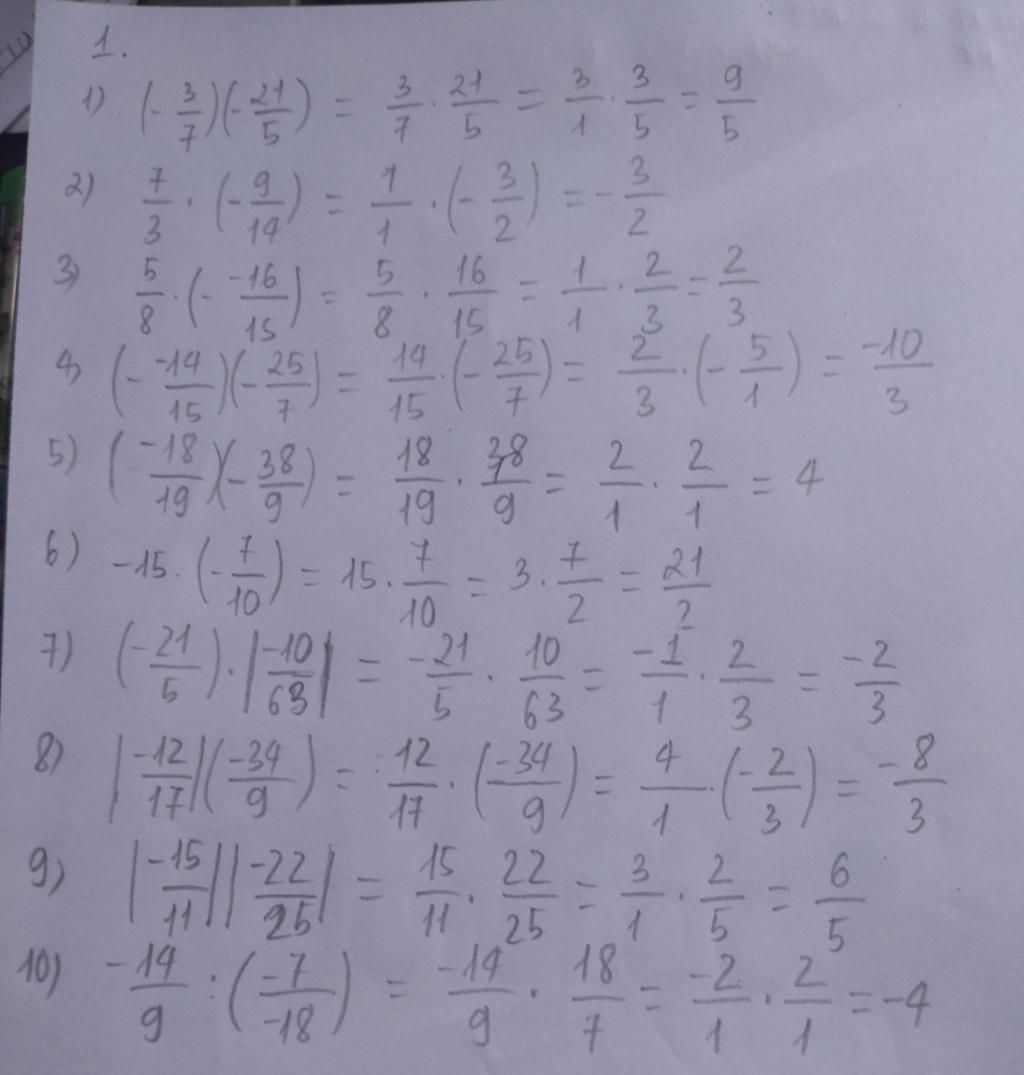 1.
1) (-3/7)(-21/5) = 3/7 · 21/5 = 3/1 · 3/5 = 9/5
2) 7/3 · (-9/14) = 1/1 · (-3/2) = -3/2
3) 5/8 · (- -16/15) = 5/8 · 16/15 = 1/1 · 2/3 = 2/3
4) (- -14/15)(-25/7) = 14/15 · (-25/7) = 2/3 · (-5/1) = -10/3
5) (-18/19)(-38/9) = 18/19 · 38/9 = 2/1 · 2/1 = 4
6) -15 · (-7/10) = 15 · 7/10 = 3 · 7/2 = 21/2
7) (-21/5) · |-10/63| = -21/5 · 10/63 = -1/1 · 2/3 = -2/3
8) |-12/17|(-34/9) = 12/17 · (-34/9) = 4/1 · (-2/3) = -8/3
9) |-15/11||-22/25| = 15/11 · 22/25 = 3/1 · 2/5 = 6/5
10) -14/9 : (-7/-18) = -14/9 · 18/7 = -2/1 · 2/1 = -4